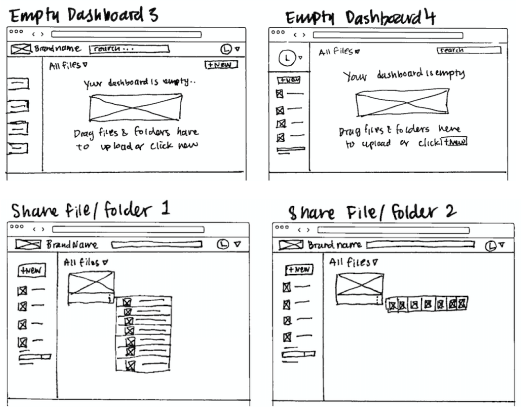 Empty Dashboard 3
Brandname search... L
All files
+New
Your dashboard is empty..
Drag files & folders here
to upload or click new
Empty Dashboard 4
L
All files search
+New
Your dashboard is empty
Drag files & folders here
to upload or click +New
Share File/folder 1
BrandName L
+New
All files
Share File/folder 2
Brand name L
+New
All files